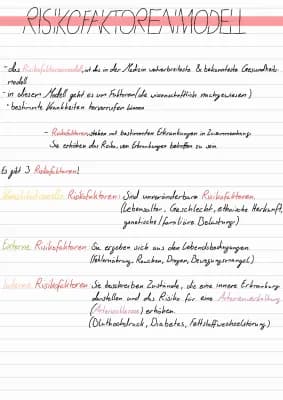 RISIKOFAKTORENMODELL
- das Risikofaktorenmodell, ist das in der Medizin weitverbreiteste & bekannteste Gesundheits-
modell
- in diesem Modell geht es um Faktoren (die wissenschaftlich nachgewiesen)
- bestimmte Krankheiten hervorrufen können
- Risikofaktoren stehen mit bestimmten Erkrankungen in Zusammenhang.
Sie erhöhen das Risiko, von Erkrankungen betroffen zu sein.
Es gibt 3 Risikofaktoren!
Risikofaktoren: Sind unveränderbare Risikofaktoren.
(Lebensalter, Geschlecht, ethnische Herkunft,
genetische/familiäre Belastung)
Externe Risikofaktoren: Sie ergeben sich aus den Lebensbedingungen.
(Fehlernährung, Rauchen, Drogen, Bewegungsmangel)
Interne Risikofaktoren: Sie beschreiben Zustände, die eine innere Erkrankung
darstellen und das Risiko für eine Arterienverkalkung
(Arteriosklerose) erhöhen.
(Bluthochdruck, Diabetes, Fettstoffwechselstörung)